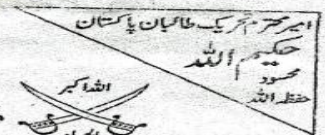 امیر محترم تحریک طالبان پاکستان
حکیم اللہ
محسود
حفظہ اللہ
اللہ اکبر